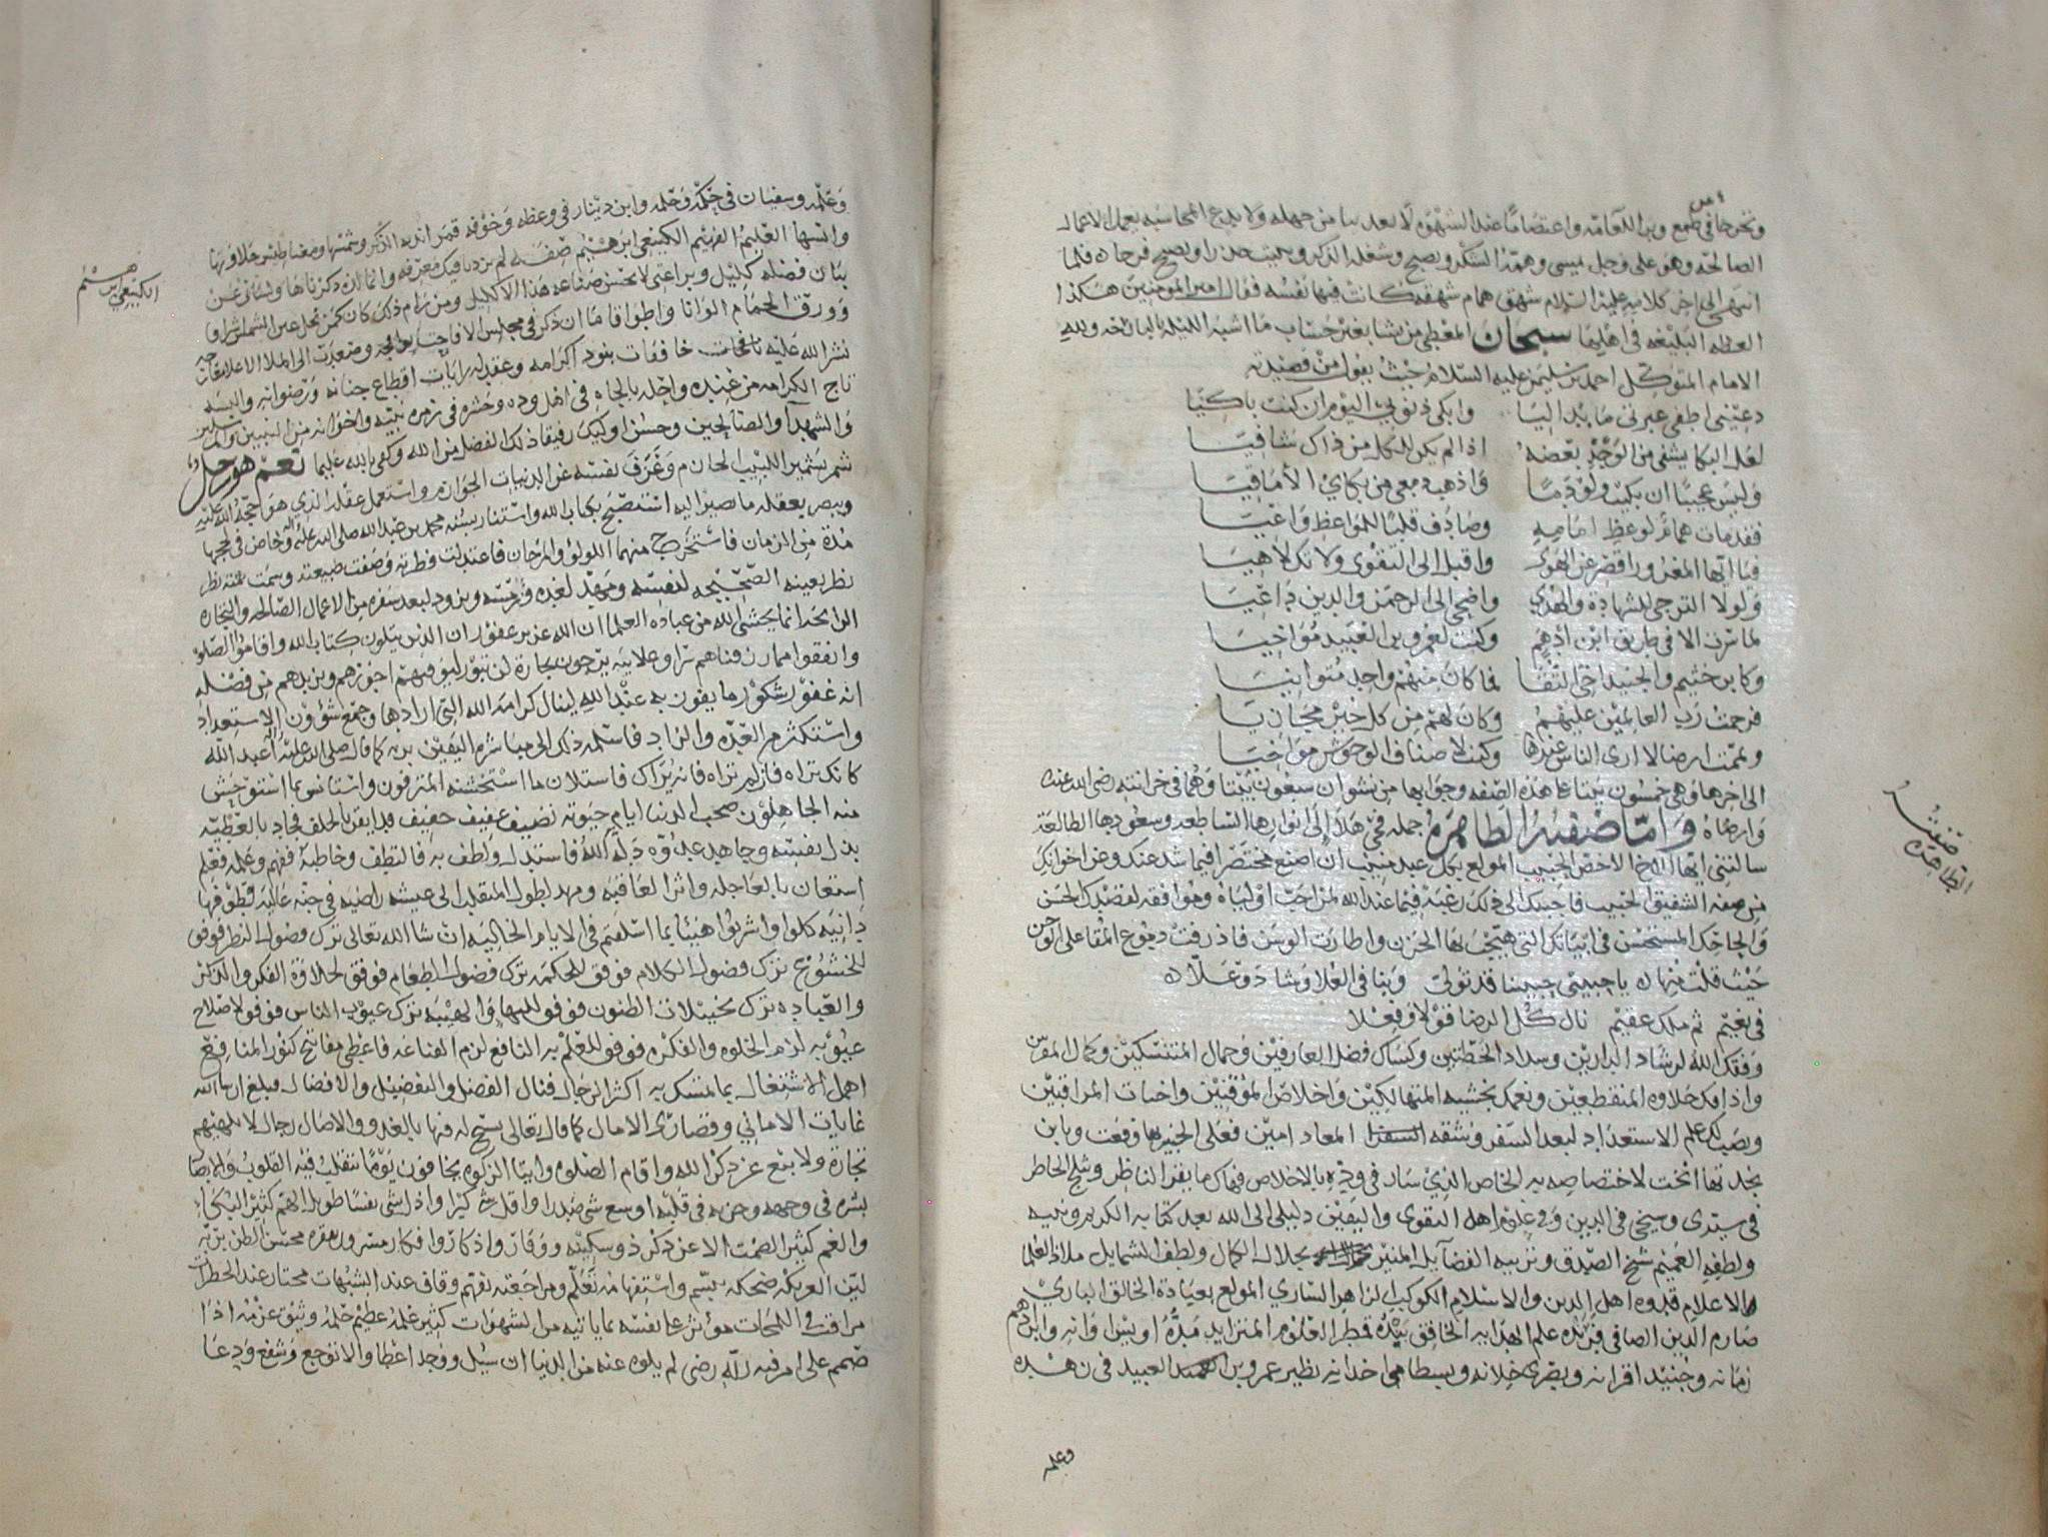 وتحرجا في طمع وبرا لدعامة واعتصاما عند الشهوه لا يعد بنا من جهله ولا يدع المحاسبه يعمل الاعمال
الصالحه وهو على وجل يمسي وهمه الشكر ويصبح وشغله الذكر ويبيت حذرا ويصبح فرحا ه فلما
انتهى الى اخر كلامه عليه السلام شهق همام شهقه كانت فيها نفسه فقال امير المومنين هكذا
العظه البليغه في اهلها سبحان المعطي من يشا بغير حساب ما اشبه الليله بالبارحه ولله
الامام المتوكل احمد بن سليمن عليه السلام حيث يقول من قصيدته
دعيني اطفي عبرتي ما بدا ليا وابكي ذنوبي اليوم ان كنت باكيا
لعل البكا يشفي من الوجد بعضه اذا لم يكن للكل من ذاك شافيا
وليس عجيبا ان بكيت ولو دما واذهب دمعي من بكاي الاماقيا
فقد مات همام لوعظ امامه وصادف قلبا للمواعظ واعيا
فيا ايها المغرور اقصر عن الهوى واقبل الى التقوى ولا تك لاهيا
ولولا الترجي للشهادة والهدى واضحي الى الرحمن والدين داعيا
لما سرت الا في طريق ابن ادهم وكنت لعمرو بن العبيد مواخيا
وكابن خثيم والجنيد اخي التقا فما كان منهم واحد متوانيا
فرحمت رب العالمين عليهم وكان لهم من كل خير مجازيا
ويممت ارضا لا ارى الناس عندها وكنت لاصناف الوحوش مواخيا
الى اخرها وهي خمسون بيتا على هذه الصفه وجوابها من نشوان سبعون بيتا وهما في خزانته رضي الله عنه
وارضاه واما صفته الطاهره جمله ففي هلا الى انوارها الساطعه وسعودها الطالعه
سالتني ايها الاخ الاخص الحبيب المولع بكل عبد منيب ان اصنع مختصرا فيما شد عنك وعن اخوانك
من صفه الشفيق الحبيب فاجبتك الى ذلك رغبة فيما عند الله لمن احب اولياه وموافقه لقصدك الحسن
والحاحك المستحسن في ابياتك التي هيجت بها الحزن واطارت الوسن فاذرفت دموع المقا على الوجن
حيث قلت فيها ه يا حبيبي حبيبنا قد تولى وبنا في العلا وشاد وعلا ه
في نعيم ثم ملك عقيم نال كل الرضا قولا وفعلا
وفقك الله لرشاد الدارين وسداد الخطتين وكساك فضل العارفين وجمال المتنسكين وكمال المقربين
واذاقك حلاوه المنقطعين ونعمك بخشيه المتهالكين واخلاص الموقنين واخبات المراقبين
ونصب لك علم الاستعداد لبعد السفر ومشقه السفر المعاد امين فعلى الخبير بها وقعت وبابن
بجدتها انخت لاختصاصه به الخاص الذي ساد في وده بالاخلاص فهاك ما يقر الناظر ويثلج الخاطر
في سيدي وشيخي في الدين وفي علوم اهل التقوى واليقين دليلي الى الله بعد كتابه الكريم ونبيه
ولطفه العميم شيخ الصدق وتربيه الفضايل المنير بجلال الكمال ولطف الشمايل ملاذ العلما
والاعلام قدوه اهل الدين والاسلام الكوكب الزاهر الساري المولع بعبادة الخالق الباري
صارم الدين الصافي فرنده علم الهدايه الخافق بنده قمطر العلوم المتزايد مده اويس اوانه وابن ادهم
زمانه وجنيد اقرانه وبصري خلانه وبسطامي اخدانه نظير عمرو بن العبيد في زهده
وعلمه
صفته
الطاهره
وعلمه وسفيان في حكمه وحلمه وابن دينار في وعظه وخوفه قمر اندية الذكر وشمسها ومغناطيس حلاوتها
وانسها العليم الفهيم الكينعي ابرهيم صفة لم تزدنا فيك معرفه وانما لذه ذكرناها ولساني عن
بيان فضله كليل ويراعتي لا تحسن صناعه هذا الاكليل ومن رام ذلك كان كمن نحل عين الشمس اشراق
وورق الحمام الوانا واطواقا ما ان ذكر في مجلس الا فاحت روايحه وصعدت الى الملا الاعلا نفحاته
نشر الله عليه نافحات خافقات بنود اكرامه وعقد له رايات اقطاع جنانه ورضوانه والبسه
تاج الكرامه من عنده واحله بالحاه في اهل وده وحشره في زمره نبيه واخوانه من النبيين والمرسلين
والشهدا والصالحين وحسن اوليك رفيقا ذلك الفضل من الله وكفى بالله عليما نعم هو رجل
شمر تشمير اللبيب الحازم وعزف نفسه عن الدنيات الجوازم واستعمل عقله الذي هو حجة الله عليه
وببصر بعقله ما نصير اليه استصبح بكتاب الله واستنار بسنه محمد بن عبد الله صلى الله عليه واله وخاض في لججها
مدة من الزمان فاستخرج منهما اللولو والمرجان فاعتدلت فطرته وصفت طبيعته وسمت همته نظر
نظر بعينه الصحيحه لنفسه ومهد لغده ورمسه وتزود لبعد سفره من الاعمال الصالحه والتجاره
الرابحه انما يخشى الله من عباده العلما ان الله عزيز غفور ان الذين يتلون كتاب الله واقاموا الصلوة
وانفقوا مما رزقناهم سرا وعلانيه يرجون تجارة لن تبور ليوفيهم اجورهم ويزيدهم من فضله
انه غفور شكور ما يقون به عند الله لينال كرامه الله التي ارادها وجمع شؤون الاستعداد
واستكثر من العده والزاد فاسلمه ذلك الى مباشره اليقين بربه كما قال صلى الله عليه واله اعبد الله
كانك تراه فان لم تراه فانه يراك فاستلان ما استخشنه المترفون واستانس بما استوحش
منه الجاهلون صحب الدنيا ايام حيوته نضيف عفيف خفيف قد ايقن بالخلف فجاد بالعطيه
بذل نفسه وجاهد عدوه دله الله فاستدل ولطف به فالتطف وخاطبه ففهم وعلمه فعلم
استعان بالعاجله واثر العاقبه ومهد لطول المنقلب الى عيشه راضيه في جنه عاليه قطوفها
دانيه كلوا واشربوا هنيئا بما اسلفتم في الايام الخاليه ان شا الله تعالى ترك فضول النظر فوفق
للخشوع ترك فضول الكلام فوفق للحكمه ترك فضول الطعام فوفق لحلاوة الفكر والذكر
والعباده ترك تخيلات الظنون فوفق للبها والهيبه ترك عيوب الناس فوفق لاصلاح
عيوبه لزم الخلوه والفكره فوفق للعلم به النافع لزم القناعه فاعطي مفاتيح كنوز المنافع
اهمل الاشتغال بما تمسك به اكثر الرجال فنال الفضل والتفضيل والافضال فبلغ ان شا الله
غايات الاماني وقصارى الامال كما قال تعالى يسبح له فيها بالغدو والاصال رجال لا تلهيهم
تجارة ولا بيع عن ذكر الله واقام الصلوه وايتا الزكوه يخافون يوما تتقلب فيه القلوب والابصار
بشره في وجهه وحزنه في قلبه اوسع شي صدرا واقل شي كبرا واذل شي نفسا طويل الهم كثير البكاء
والغم كثير الصمت الا عن ذكر ذو سكينه ووقار واذكار وافكار مسرور بفقره محسن الظن بربه
لين العريكه ضحكه تبسم واستفهامه تعلم ومراجعته تفهم وقاف عند الشبهات محتار عند الخطرات
مراقب في اللمحات مؤثر على نفسه بما ياتيه من الشهوات كثير علمه عظيم حلمه وثيق عزمه اذا
صمم على امر فيه لله رضى لم يلوه عنه من الدنيا ان سيل ووجد اعطا والا توجع وشفع ودعا
الكينعي ابرهيم